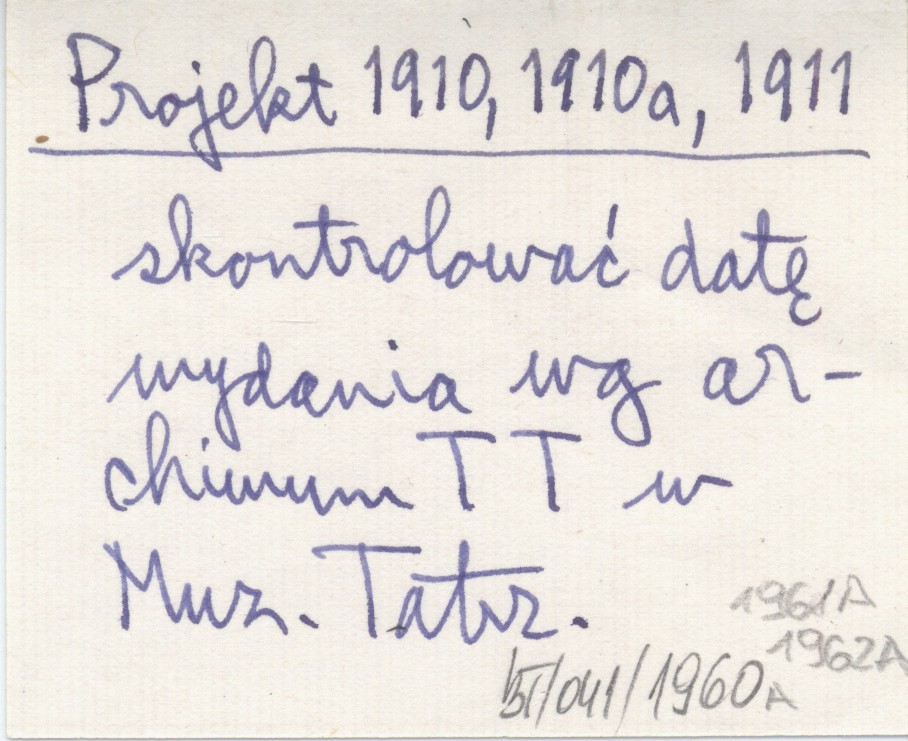 Projekt 1910, 1910a, 1911
skontrolować datę
wydania wg ar-
chiwum TT w
Muz. Tatrz.
1961A
1962A
/041/1960A